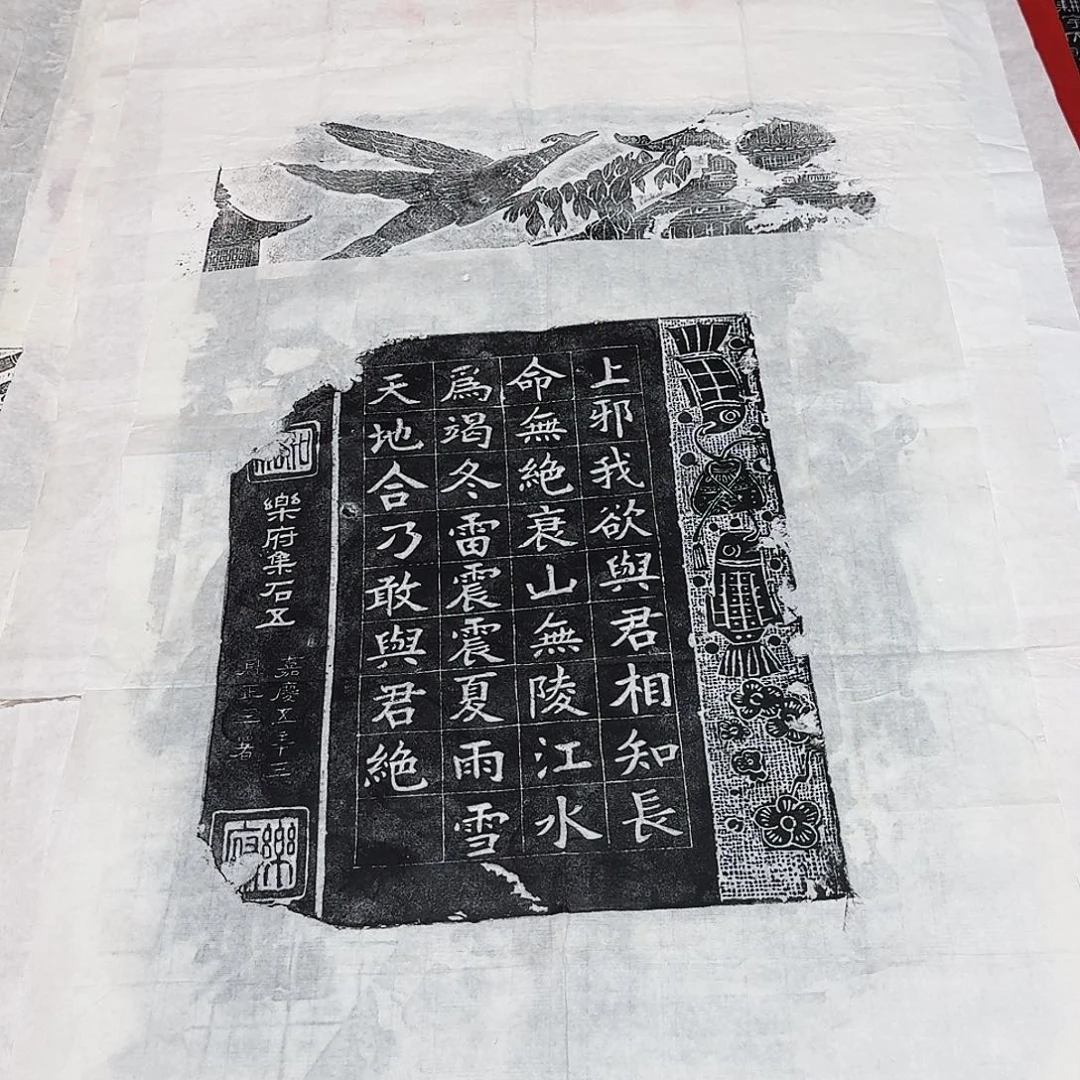 上邪我欲與君相知長
命無絕衰山無陵江水
爲竭冬雷震震夏雨雪
天地合乃敢與君絕
樂府集石五
嘉慶五年十三
樂府